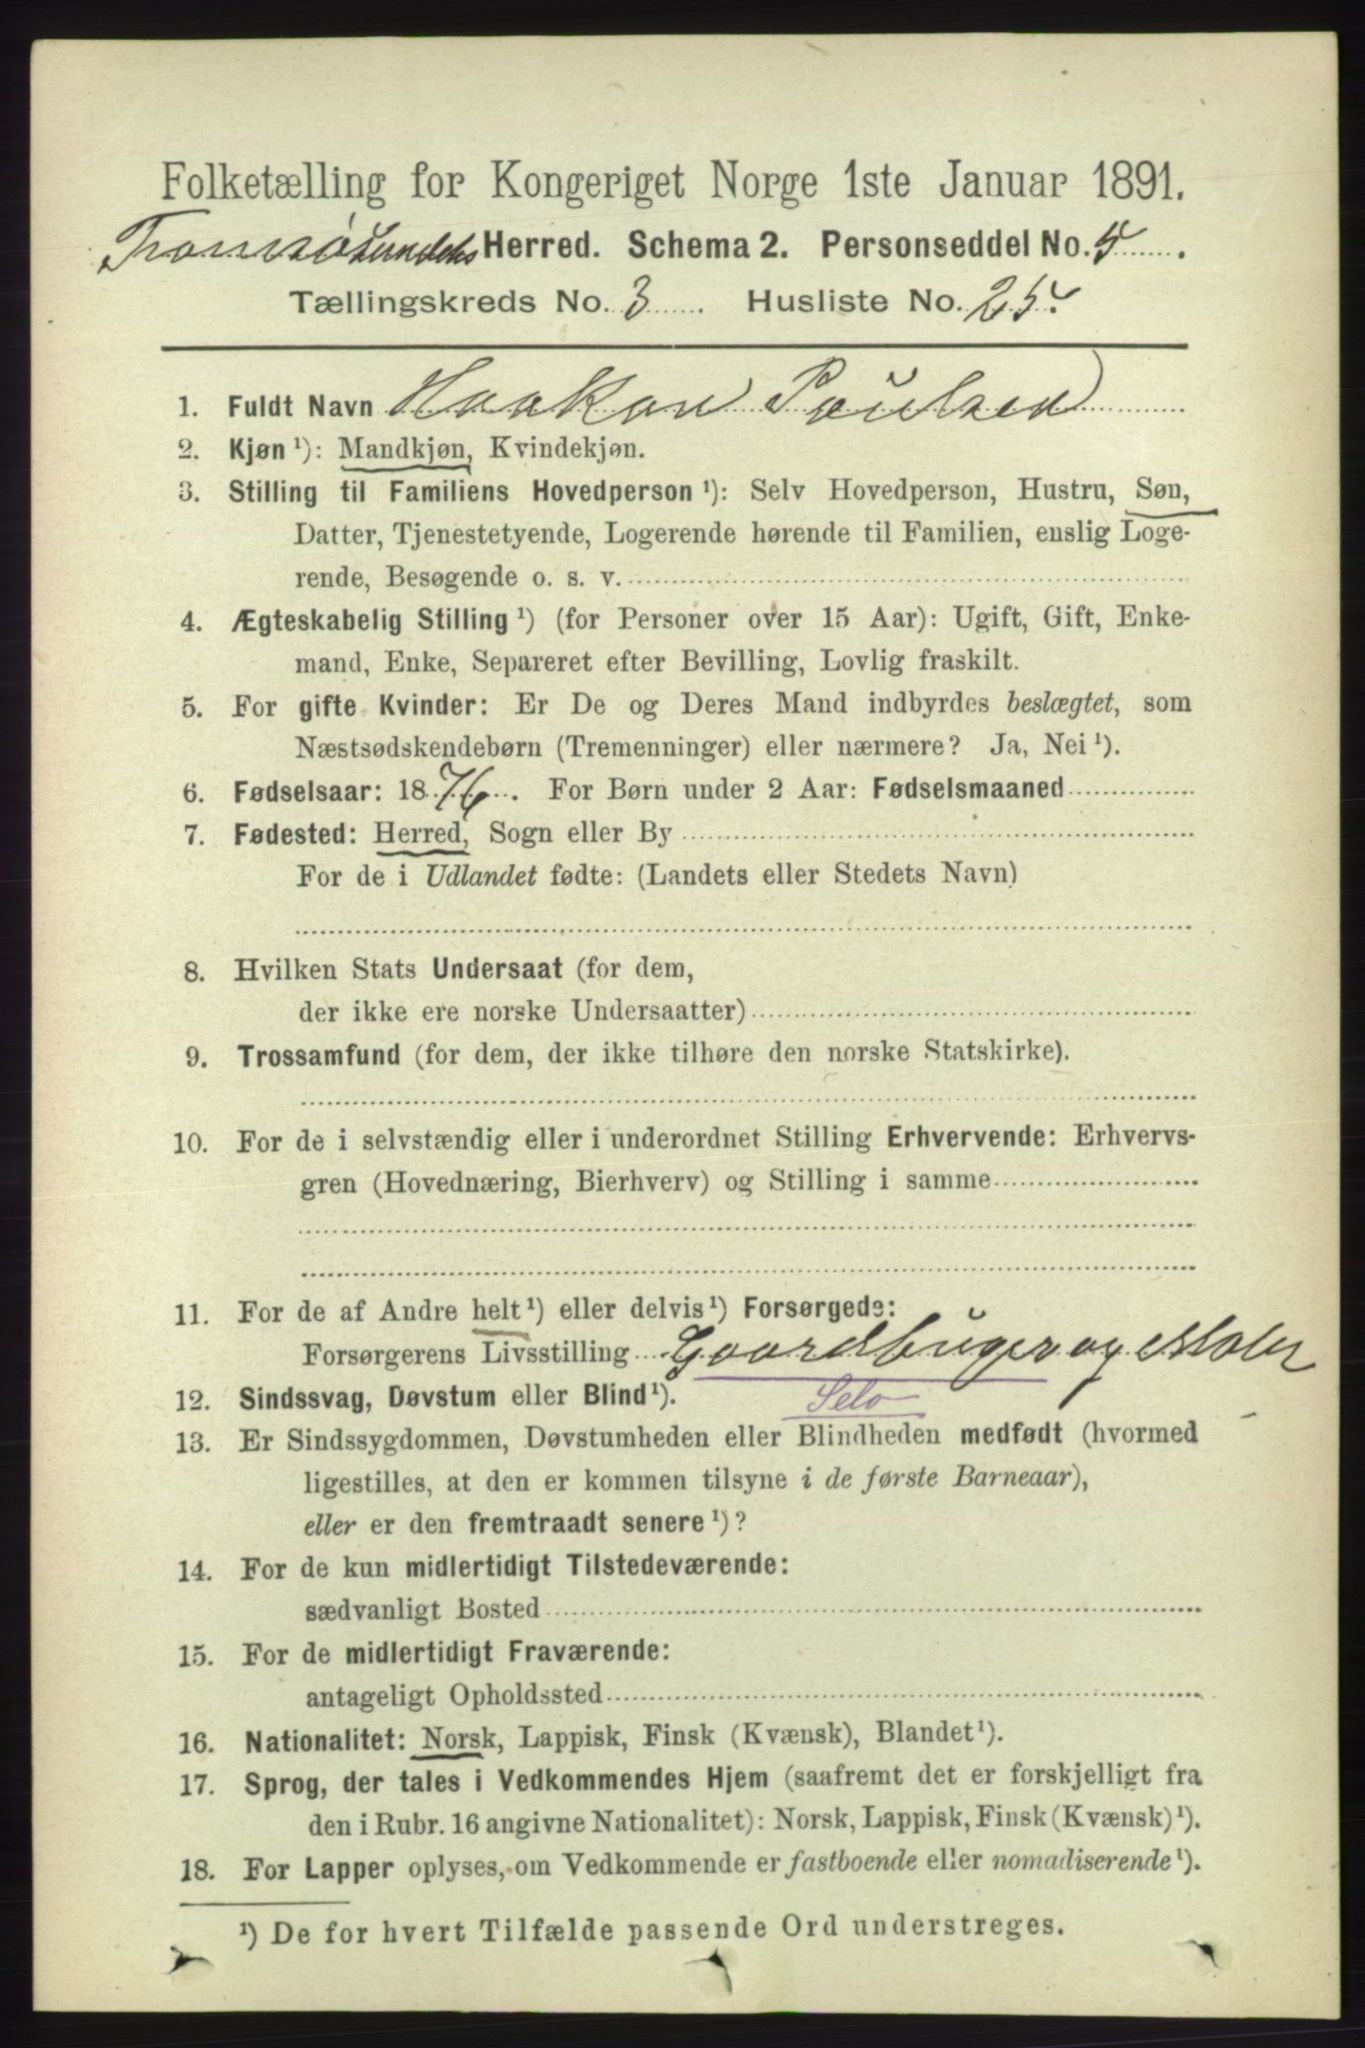 Folketælling for Kongeriget Norge 1ste Januar 1891.
Tromsøsundets Herred. Schema 2. Personseddel No. 5.
Tællingskreds No. 3. Husliste No. 25.
1. Fuldt Navn Haakon Poulsen
2. Kjøn ¹): Mandkjøn, Kvindekjøn.
3. Stilling til Familiens Hovedperson ¹): Selv Hovedperson, Hustru, Søn,
Datter, Tjenestetyende, Logerende hørende til Familien, enslig Loge-
rende, Besøgende o. s. v.
4. Ægteskabelig Stilling ¹) (for Personer over 15 Aar): Ugift, Gift, Enke-
mand, Enke, Separeret efter Bevilling, Lovlig fraskilt.
5. For gifte Kvinder: Er De og Deres Mand indbyrdes beslægtet, som
Næstsødskendebørn (Tremenninger) eller nærmere? Ja, Nei ¹).
6. Fødselsaar: 1876. For Børn under 2 Aar: Fødselsmaaned
7. Fødested: Herred, Sogn eller By
For de i Udlandet fødte: (Landets eller Stedets Navn)
8. Hvilken Stats Undersaat (for dem,
der ikke ere norske Undersaatter)
9. Trossamfund (for dem, der ikke tilhøre den norske Statskirke).
10. For de i selvstændig eller i underordnet Stilling Erhvervende: Erhvervs-
gren (Hovednæring, Bierhverv) og Stilling i samme
11. For de af Andre helt ¹) eller delvis ¹) Forsørgede:
Forsørgerens Livsstilling Gaardbruger og Maler
12. Sindssvag, Døvstum eller Blind ¹). Selv
13. Er Sindssygdommen, Døvstumheden eller Blindheden medfødt (hvormed
ligestilles, at den er kommen tilsyne i de første Barneaar),
eller er den fremtraadt senere ¹)?
14. For de kun midlertidigt Tilstedeværende:
sædvanligt Bosted
15. For de midlertidigt Fraværende:
antageligt Opholdssted
16. Nationalitet: Norsk, Lappisk, Finsk (Kvænsk), Blandet ¹).
17. Sprog, der tales i Vedkommendes Hjem (saafremt det er forskjelligt fra
den i Rubr. 16 angivne Nationalitet): Norsk, Lappisk, Finsk (Kvænsk) ¹).
18. For Lapper oplyses, om Vedkommende er fastboende eller nomadiserende ¹).
¹) De for hvert Tilfælde passende Ord understreges.